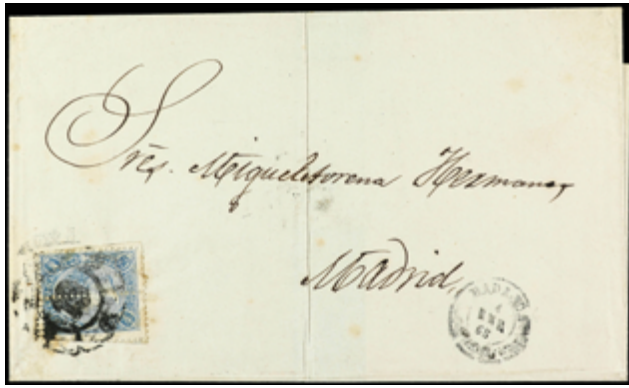 Sres. Migueletorena Hermanos,
Madrid,
MADRID
1
ENE
65